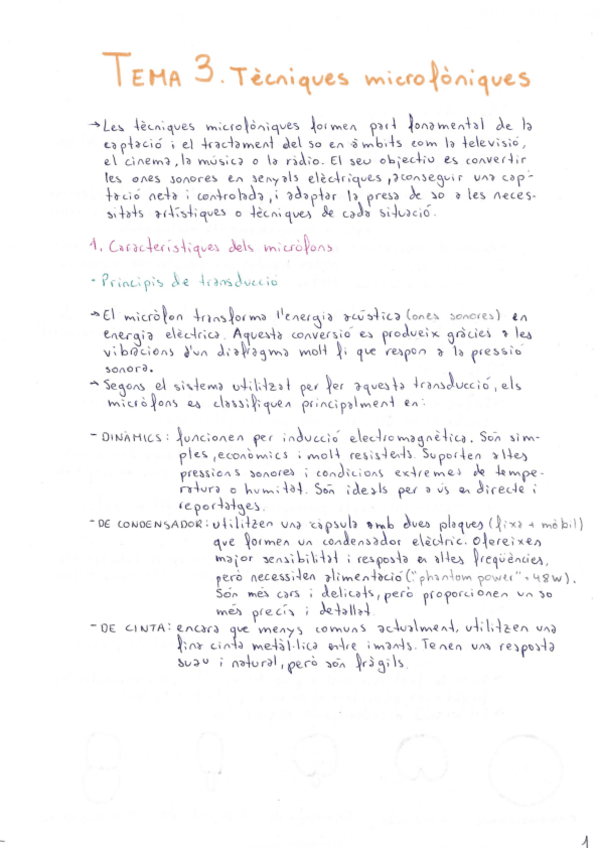 TEMA 3. Tècniques microfòniques
→ Les tècniques microfòniques formen part fonamental de la
captació i el tractament del so en àmbits com la televisió,
el cinema, la música o la ràdio. El seu objectiu és convertir
les ones sonores en senyals elèctriques, aconseguir una cap-
tació neta i controlada, i adaptar la presa de so a les neces-
sitats artístiques o tècniques de cada situació.
1. Característiques dels micròfons
· Principis de transducció
→ El micròfon transforma l'energia acústica (ones sonores) en
energia elèctrica. Aquesta conversió es produeix gràcies a les
vibracions d'un diafragma molt fi que respon a la pressió
sonora.
→ Segons el sistema utilitzat per fer aquesta transducció, els
micròfons es classifiquen principalment en:
- DINÀMICS: funcionen per inducció electromagnètica. Són sim-
ples, econòmics i molt resistents. Suporten altes
pressions sonores i condicions extremes de tempe-
ratura o humitat. Són ideals per a ús en directe i
reportatges.
- DE CONDENSADOR: utilitzen una càpsula amb dues plaques (fixa + mòbil)
que formen un condensador elèctric. Ofereixen
major sensibilitat i resposta en altes freqüències,
però necessiten alimentació ("phantom power" +48W).
Són més cars i delicats, però proporcionen un so
més precís i detallat.
- DE CINTA: encara que menys comuns actualment, utilitzen una
fina cinta metàl·lica entre imants. Tenen una resposta
suau i natural, però són fràgils.
1